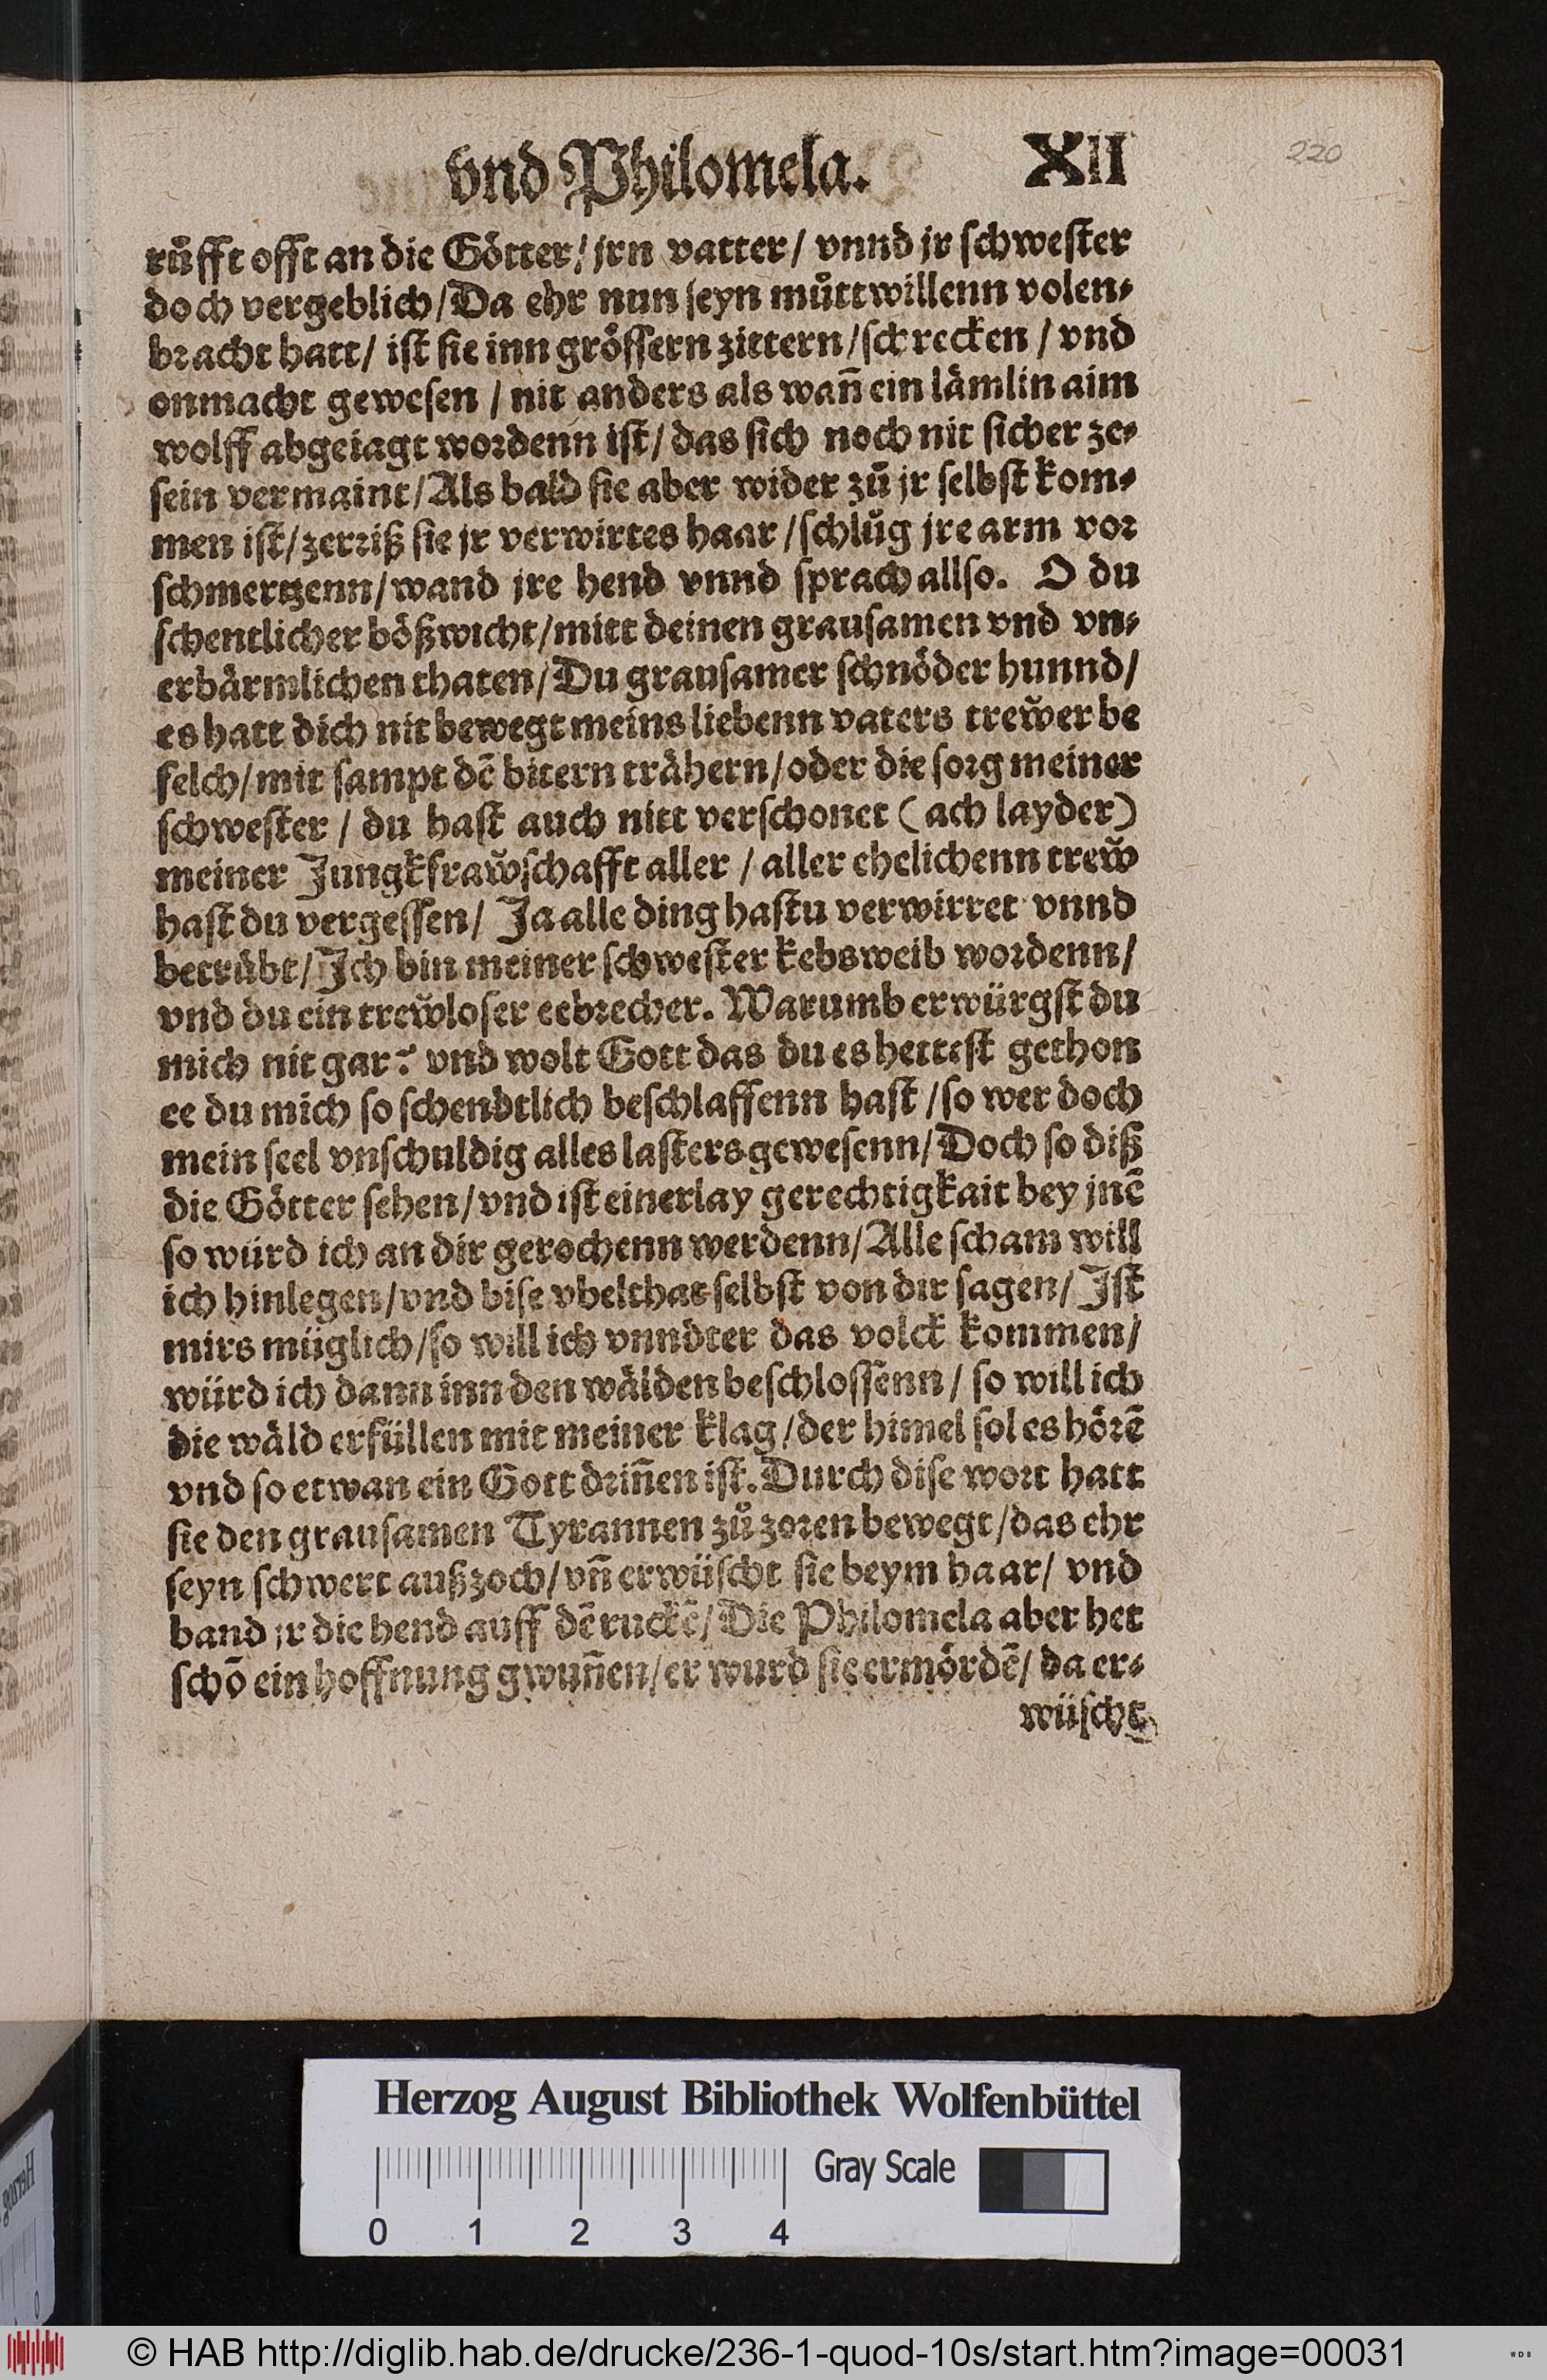 vnd Philomela. XII
220
růfft offt an die Götter/ jrn vatter/ vnnd jr schwester
doch vergeblich/ Da ehr nun seyn můttwillenn volen⸗
bracht hatt/ ist sie inn grössern zittern/ schrecken / vnd
onmacht gewesen / nit anders als wañ ein lämlin aim
wolff abgeiagt wordenn ist/ das sich noch nit sicher ze⸗
sein vermaint/ Als bald sie aber wider zů jr selbst kom⸗
men ist/ zerriß sie jr verwirtes haar /schlůg jre arm vor
schmertzenn/ wand jre hend vnnd sprach allso. O du
schentlicher bößwicht/ mitt deinen grausamen vnd vn⸗
erbärmlichen thaten/ Du grausamer schnöder hunnd/
es hatt dich nit bewegt meins liebenn vaters trew̌er be
felch/ mit sampt dẽ bitern trähern/ oder die sorg meiner
schwester / du hast auch nitt verschonet (ach layder)
meiner Jungkfraw̌schafft aller / aller ehelichenn trew̌
hast du vergessen/ Ja alle ding hastu verwirret vnnd
betrübt/ Ich bin meiner schwester kebsweib wordenn/
vnd du ein trew̌loser eebrecher. Warumb erwürgst du
mich nit gar? vnd wolt Gott das du es hettest gethon
ee du mich so schendtlich beschlaffenn hast /so wer doch
mein seel vnschuldig alles lasters gewesenn/ Doch so diß
die Götter sehen/ vnd ist einerlay gerechtigkait bey jnẽ
so würd ich an dir gerochenn werdenn/ Alle scham will
ich hinlegen/ vnd bise vbelthat selbst von dir sagen/ Ist
mirs müglich/ so will ich vnndter das volck kommen/
würd ich dann inn den wälden beschlossenn / so will ich
die wäld erfüllen mit meiner klag /der himel sol es hörẽ
vnd so etwan ein Gott driñen ist. Durch dise wort hatt
sie den grausamen Tyrannen zů zoren bewegt/ das ehr
seyn schwert außzoch/ vñ erwüscht sie beym haar/ vnd
band jr die hend auff dẽ ruckẽ/ Die Philomela aber het
schõ ein hoffnung gwuñen/ er wurd sie ermördẽ/ da er⸗
wüscht
Herzog August Bibliothek Wolfenbüttel
Gray Scale
0 1 2 3 4
© HAB http://diglib.hab.de/drucke/236-1-quod-10s/start.htm?image=00031